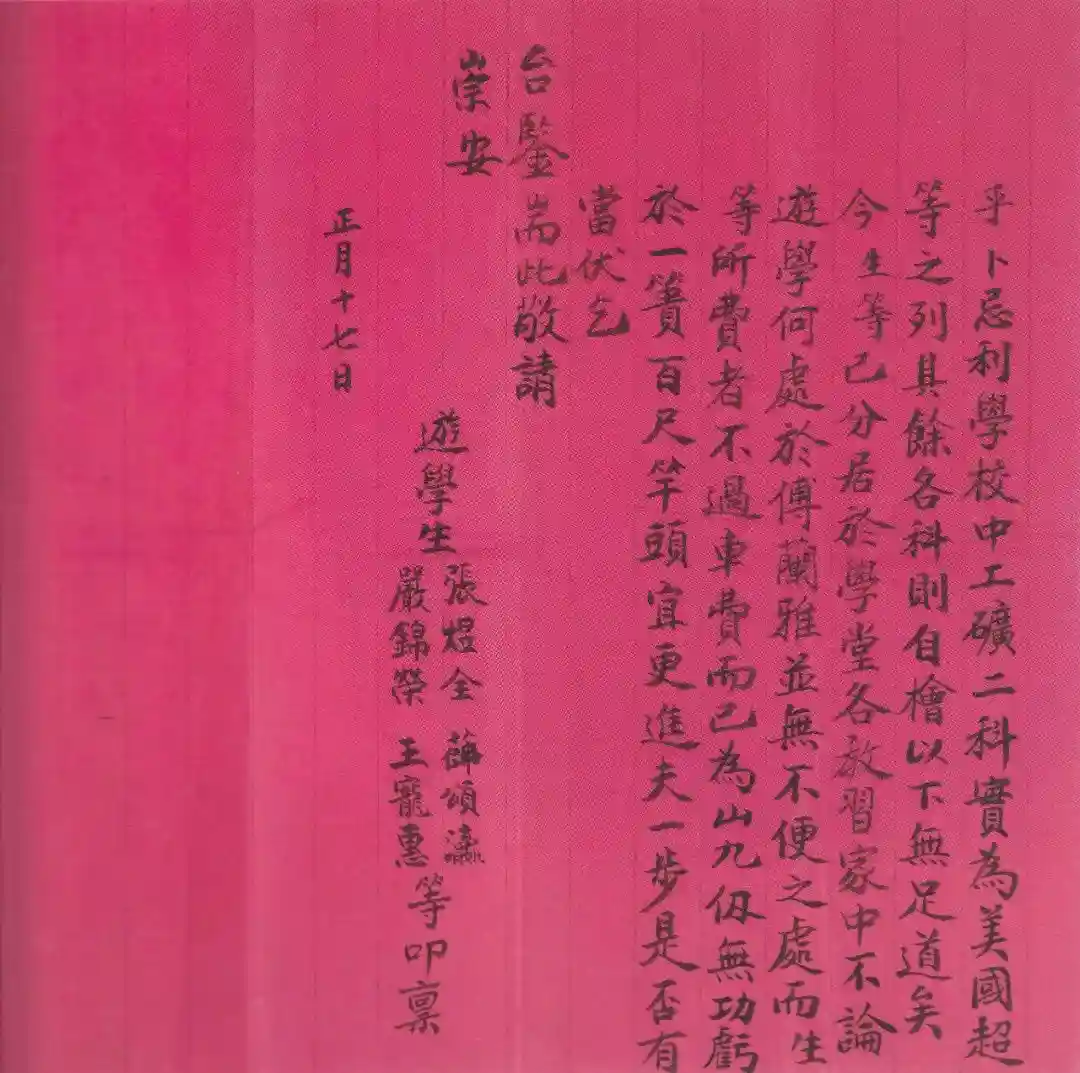 乎卜忌利學校中工礦二科實為美國超
等之列其餘各科則自檜以下無足道矣
今生等已分居於學堂各教習家中不論
遊學何處於傅蘭雅並無不便之處而生
等所費者不過車費而已為山九仭無功虧
於一簣百尺竿頭宜更進夫一步是否有
當伏乞
台鑒耑此敬請
崇安
遊學生
張煜全 薛頌瀛
嚴錦榮 王寵惠
等叩稟
正月十七日